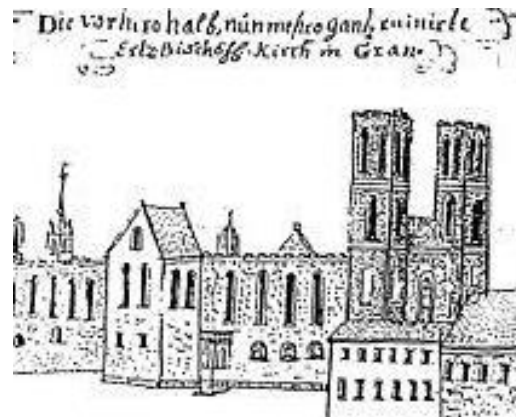 Die vorhiro halb, nůn mehro gantz ruinirte
ErtzBischoff. Kirch in Gran.